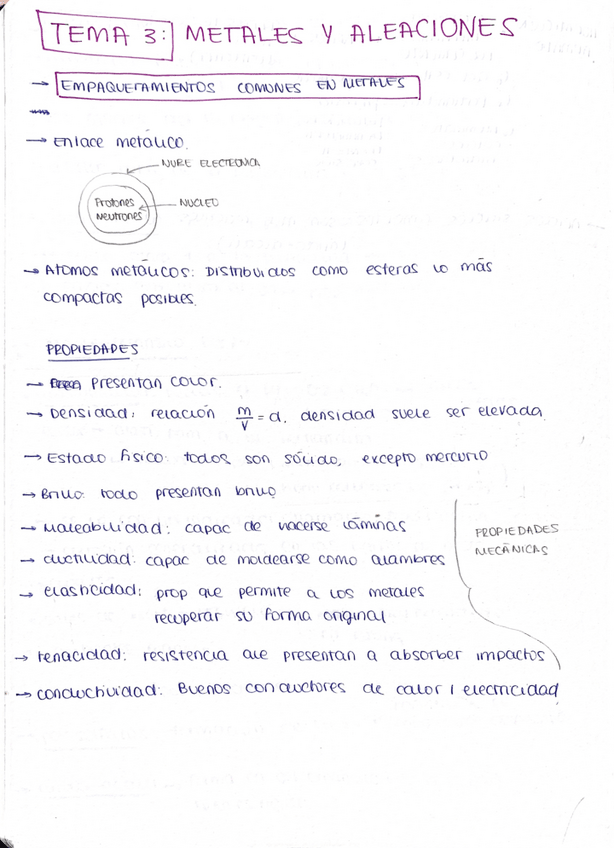 TEMA 3: METALES Y ALEACIONES
→ EMPAQUETAMIENTOS COMUNES EN METALES
→ Enlace metálico.
NUBE ELECTRONICA
Protones
Neutrones
NUCLEO
→ Atomos metálicos: Distribuidos como esferas lo más
compactas posibles.
PROPIEDADES
→ presentan color.
→ Densidad: relación m/V = d. densidad suele ser elevada.
→ Estado físico: todos son sólido, excepto mercurio
→ Brillo: todo presentan brillo
→ Maleabilidad: capac de hacerse láminas
→ ductilidad: capac de moldearse como alambres
→ elasticidad: prop que permite a los metales
recuperar su forma original
PROPIEDADES
MECÁNICAS
→ tenacidad: resistencia que presentan a absorber impactos
→ conductividad: Buenos conductores de calor y electricidad